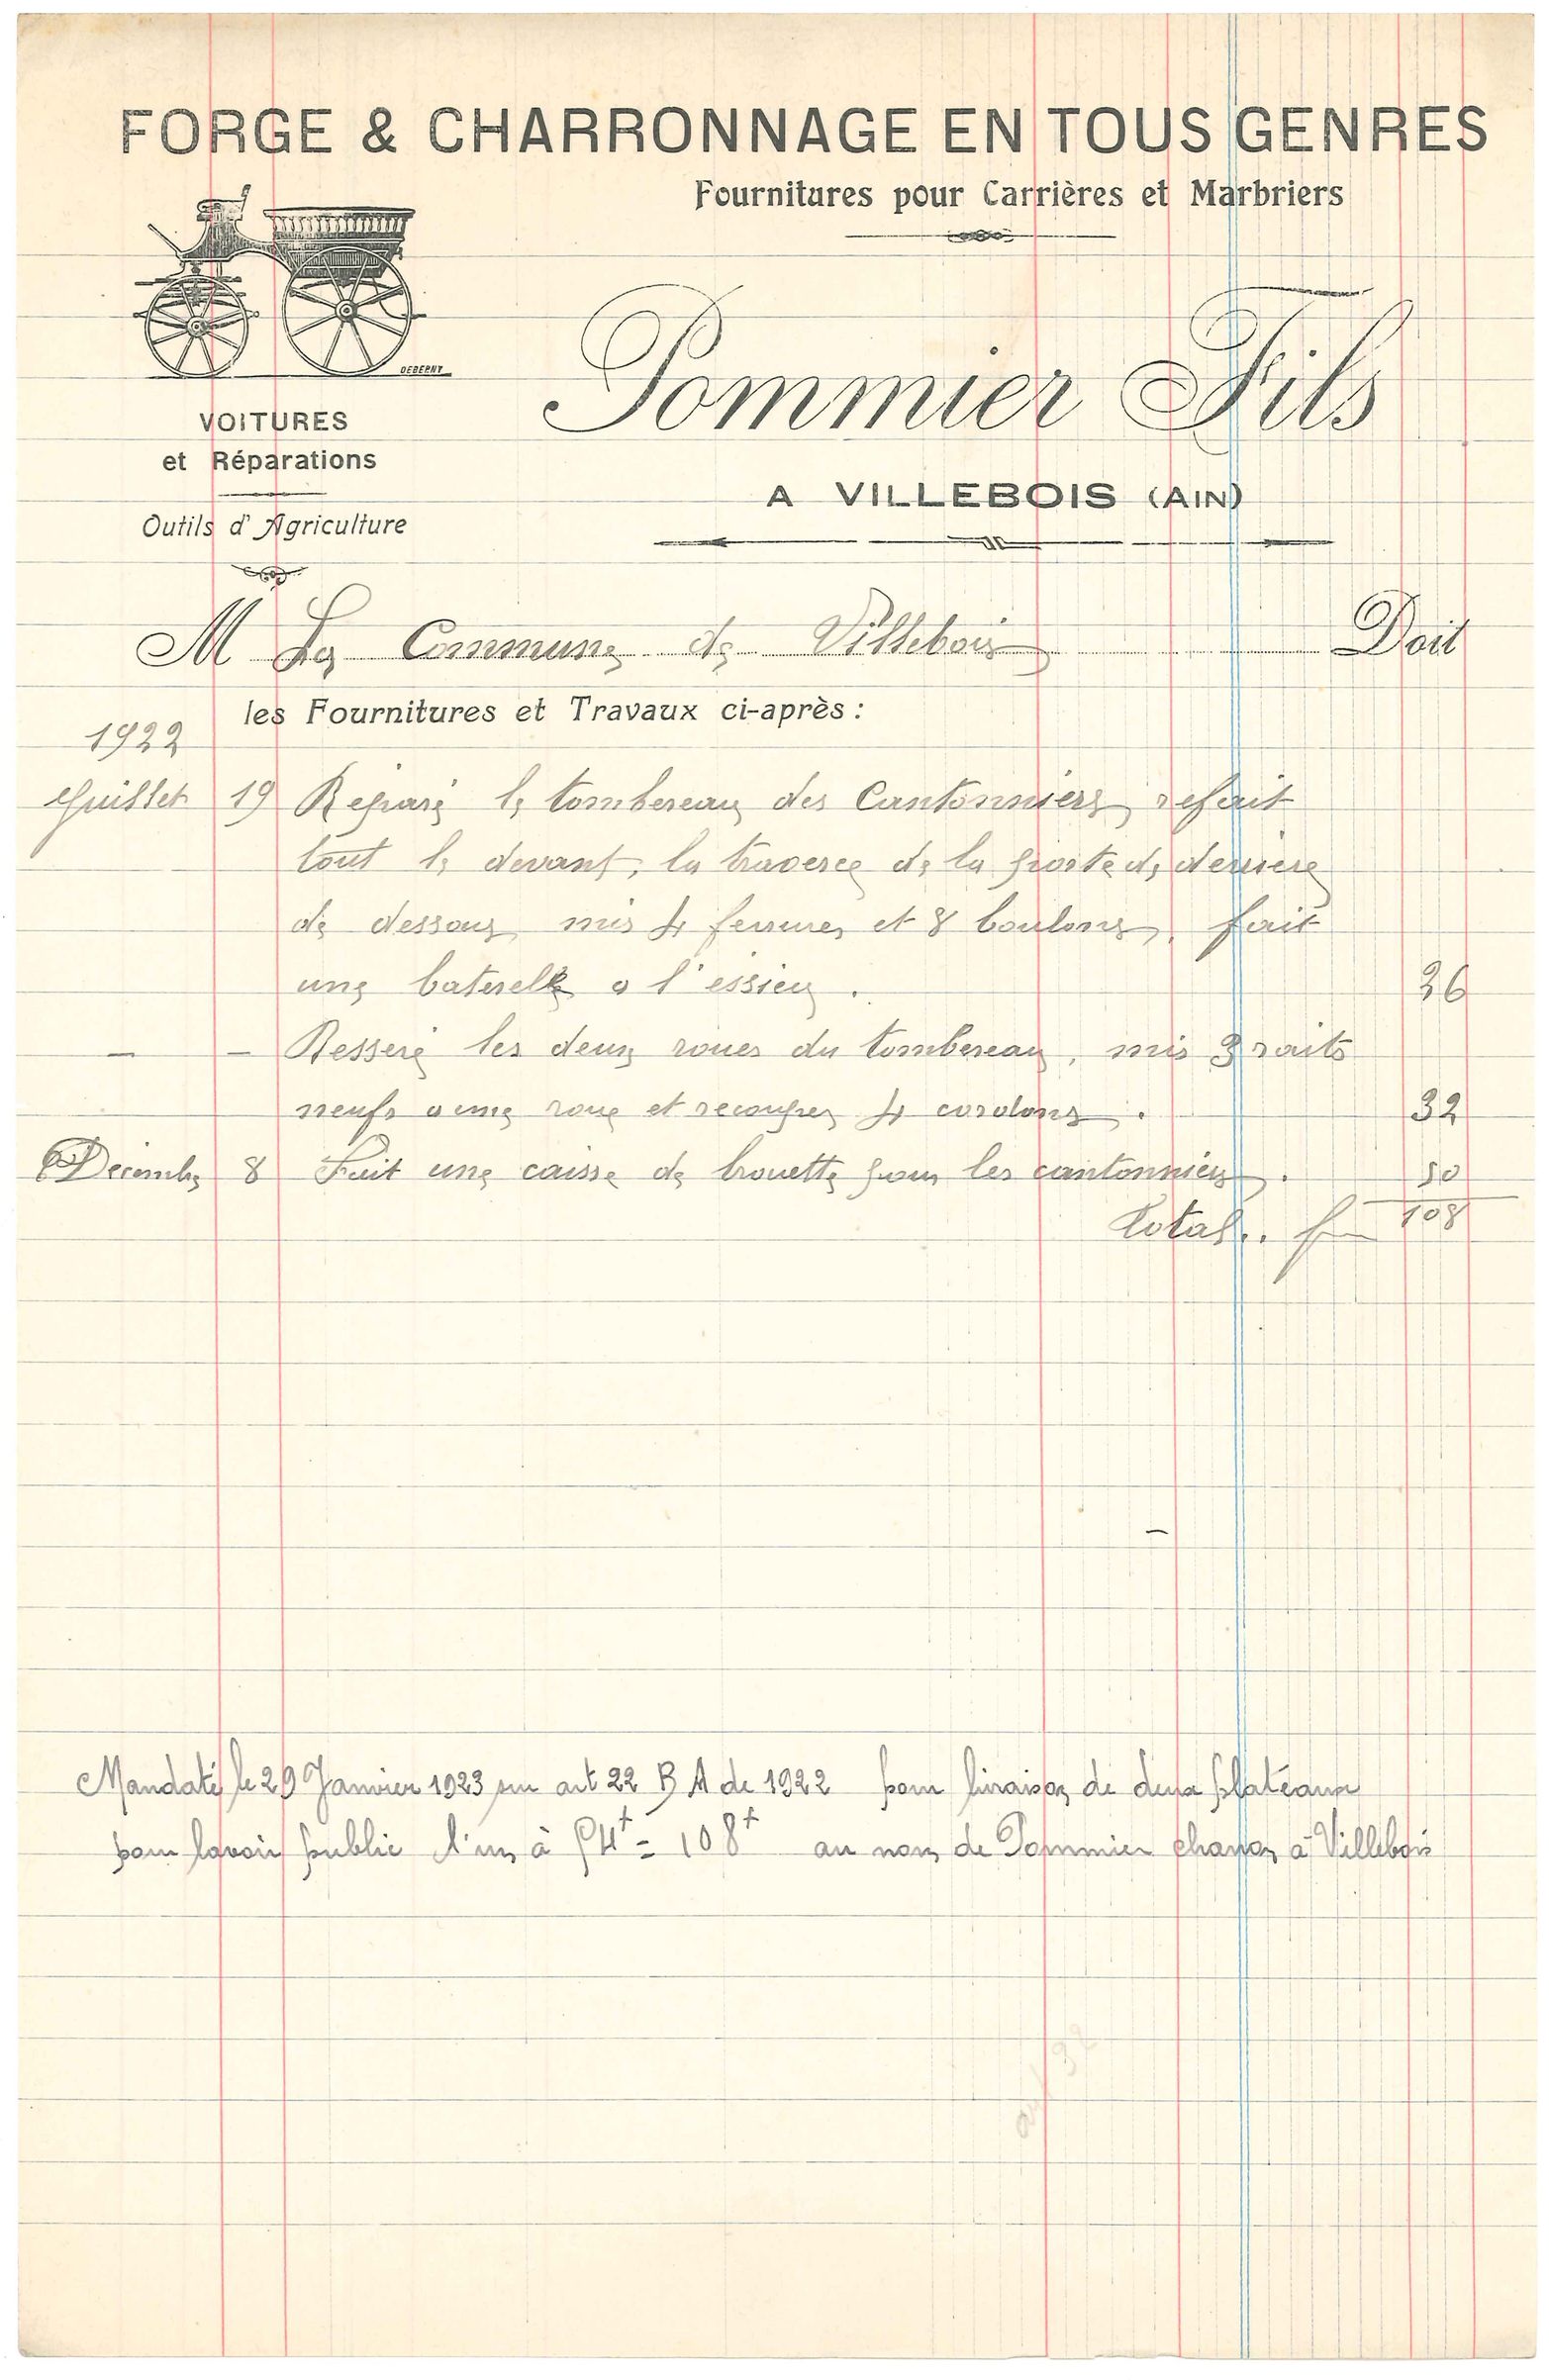 FORGE & CHARRONNAGE EN TOUS GENRES
Fournitures pour Carrières et Marbriers
DEBERNY
VOITURES
et Réparations
Outils d'Agriculture
Pommier Fils
A VILLEBOIS (AIN)
M La Commune de Villebois Doit
les Fournitures et Travaux ci-après :
1922
Juillet 19 Réparé le tombereau des Cantonniers refait
tout le devant, la traverse de la porte de derriere
de dessous mis 4 ferrures et 8 boulons, fait
une à l'essieu . 36
— — Resseré les deux roues du tombereau, mis 3 raits
neufs a une roue et 4 . 32
Décembre 8 Fait une caisse de brouette pour les cantonniers . 40
Total . . f 108
Mandaté le 29 Janvier 1923 sur art 22 B A de 1922 pour livraison de deux plateaux
pour lavoir public l'un à 54f = 108f au nom de Pommier charron à Villebois